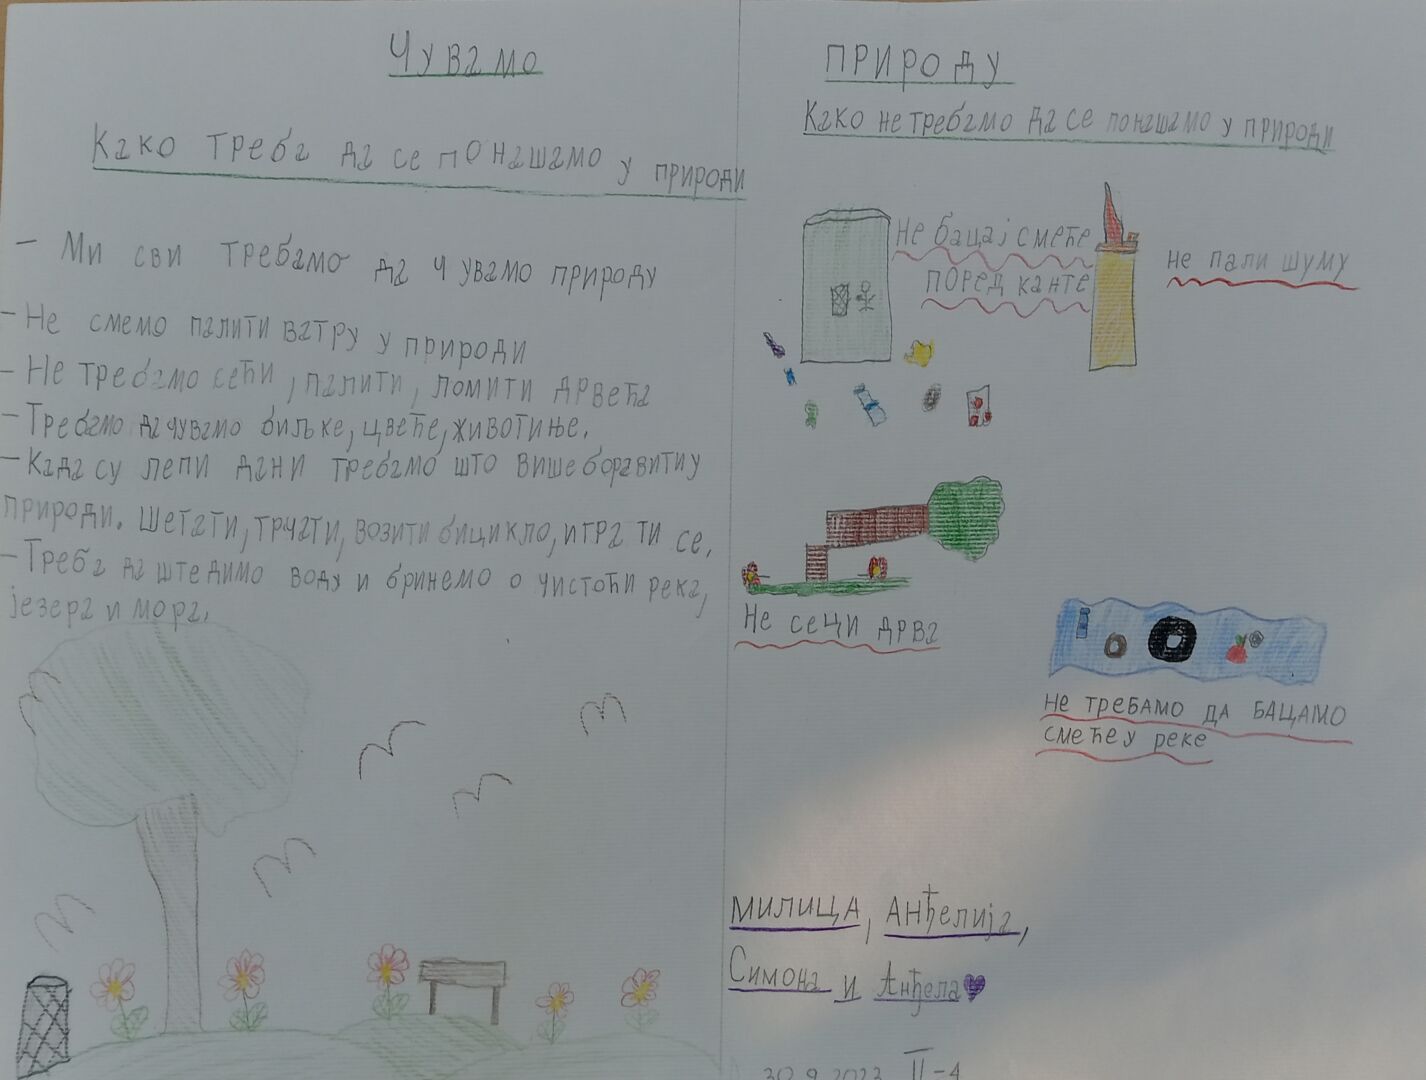 Чувамо
Како треба да се понашамо у природи
- Ми сви требамо да чувамо природу
- Не смемо палити ватру у природи
- Не требамо сећи, палити, ломити дрвећа
- Требамо да чувамо биљке, цвеће, животиње.
- Када су лепи дани требамо што више боравити у
природи. Шетати, трчати, возити бицикло, играти се.
- Треба да штедимо воду и бринемо о чистоћи река,
језера и мора.
ПРИРОДУ
Како не требамо да се понашамо у природи
Не бацај смеће
поред канте
не пали шуму
Не сеци дрва
Не требамо да бацамо
смеће у реке
Милица, Анђелија,
Симона и Анђела
30.9.2023 II-4